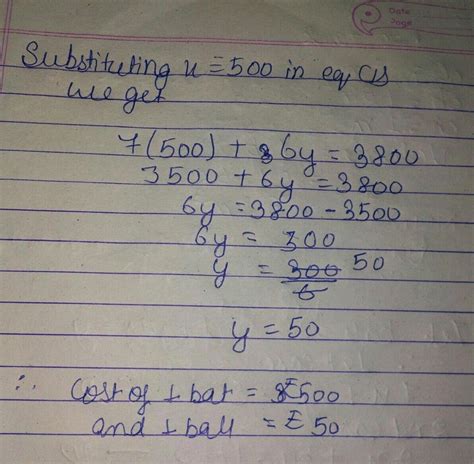 Date
Page
Substituting x = 500 in eq (1)
we get
7(500) + 6y = 3800
3500 + 6y = 3800
6y = 3800 - 3500
6y = 300
y = 300/6 50
y = 50
∴ Cost of 1 bat = 500
and 1 ball = 50